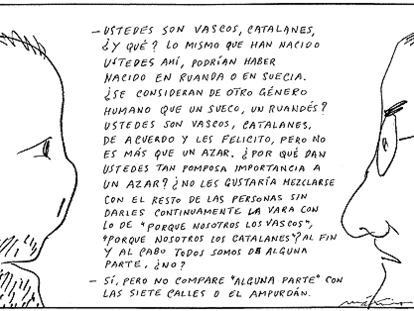 - USTEDES SON VASCOS, CATALANES,
¿Y QUÉ? LO MISMO QUE HAN NACIDO
USTEDES AHÍ, PODRÍAN HABER
NACIDO EN RUANDA O EN SUECIA.
¿SE CONSIDERAN DE OTRO GÉNERO
HUMANO QUE UN SUECO, UN RUANDÉS?
USTEDES SON VASCOS, CATALANES,
DE ACUERDO Y LES FELICITO, PERO NO
ES MÁS QUE UN AZAR. ¿POR QUÉ DAN
USTEDES TAN POMPOSA IMPORTANCIA A
UN AZAR? ¿NO LES GUSTARÍA MEZCLARSE
CON EL RESTO DE LAS PERSONAS SIN
DARLES CONTINUAMENTE LA VARA CON
LO DE "PORQUE NOSOTROS LOS VASCOS",
"PORQUE NOSOTROS LOS CATALANES"? AL FIN
Y AL CABO TODOS SOMOS DE ALGUNA
PARTE, ¿NO?
- SÍ, PERO NO COMPARE "ALGUNA PARTE" CON
LAS SIETE CALLES O EL AMPURDÁN.